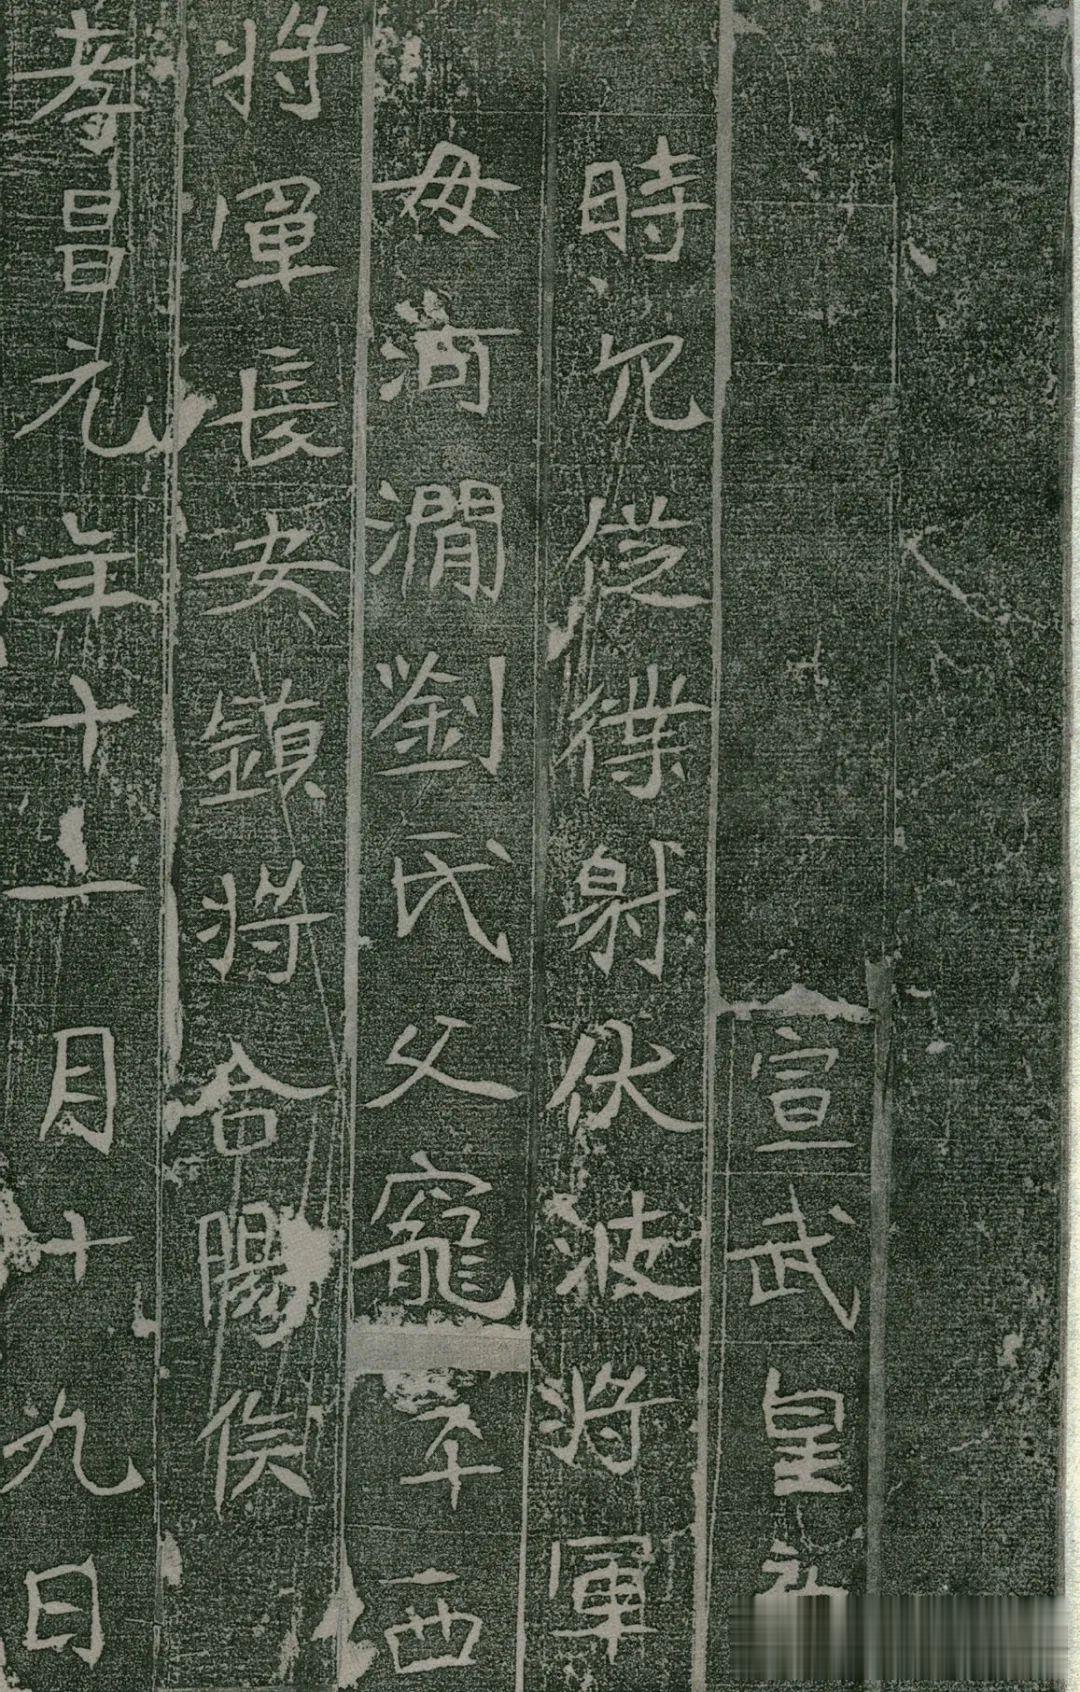 宣武皇
時冗從僕射伏波將軍
母河澗劉氏父寵平西
將軍長安鎮將合陽侯
孝昌元年十一月十九日